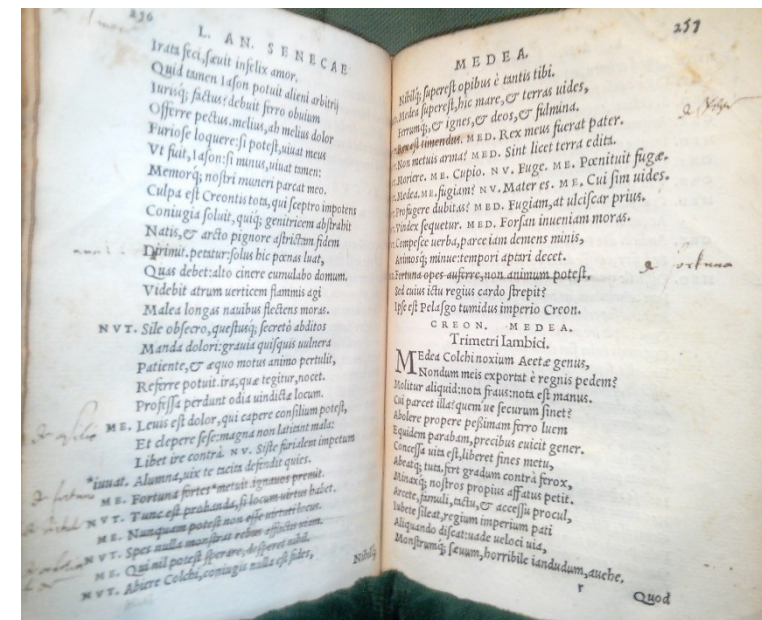 236
L. AN. SENECAE
Irata feci, sæuit infelix amor.
Quid tamen Iason potuit alieni arbitrij
Iurisq; factus? debuit ferro obuium
Offerre pectus. melius, ah melius dolor
Furiose loquere: si potest, uiuat meus
Vt fuit, Iason: si minus, uiuat tamen:
Memorq; nostri muneri parcat meo.
Culpa est Creontis tota, qui sceptro impotens
Coniugia soluit, quiq; genitricem abstrahit
Natis, & arcto pignore astrictam fidem
Dirimit. petatur: solus hic pœnas luat,
Quas debet: alto cinere cumulabo domum.
Videbit atrum uerticem flammis agi
Malea longas nauibus flectens moras.
NVT. Sile obsecro, questusq; secretò abditos
Manda dolori: grauia quisquis uulnera
Patiente, & æquo motus animo pertulit,
Referre potuit. ira, quæ tegitur, nocet.
Professa perdunt odia uindictæ locum.
ME. Leuis est dolor, qui capere consilium potest,
Et clepere sese: magna non latitant mala:
Libet ire contrà. NV. Siste furialem impetum
*iuuat. Alumna, uix te tacita defendit quies.
ME. Fortuna fortes *metuit ignauos premit.
NVT. Tunc est probanda, si locum uirtus habet.
ME. Nunquam potest non esse uirtuti locus.
NVT. Spes nulla monstrat rebus afflictis uiam.
ME. Qui nil potest sperare, desperet nihil.
NVT. Abiere Colchi, coniugis nulla est fides,
Nihilq;
257
MEDEA.
Nihilq; superest opibus è tantis tibi.
Medea superest, hic mare, & terras uides,
Ferrumq;, & ignes, & deos, & fulmina.
Rex est timendus. MED. Rex meus fuerat pater.
Non metuis arma? MED. Sint licet terra edita.
Moriere. ME. Cupio. NV. Fuge. ME. Pœnituit fugæ.
Medea. ME. fugiam? NV. Mater es. ME. Cui sim uides.
Profugere dubitas? MED. Fugiam, at ulciscar prius.
Vindex sequetur. MED. Forsan inueniam moras.
Compesce uerba, parce iam demens minis,
Animosq; minue: tempori aptari decet.
Fortuna opes auferre, non animum potest.
Sed cuius ictu regius cardo strepit?
Ipse est Pelasgo tumidus imperio Creon.
CREON. MEDEA.
Trimetri Iambici.
MEdea Colchi noxium Aeetæ genus,
Nondum meis exportat è regnis pedem?
Molitur aliquid: nota fraus: nota est manus.
Cui parcet illa? quem ue securum sinet?
Abolere propere peßimam ferro luem
Equidem parabam, precibus euicit gener.
Concessa uita est, liberet fines metu,
Abeatq; tuta. fert gradum contrà ferox,
Minaxq; nostros propius affatus petit.
Arcete, famuli, tactu, & accessu procul,
Iubete sileat, regium imperium pati
Aliquando discat: uade ueloci uia,
Monstrumq; sæuum, horribile iandudum, auehe.
r
Quod